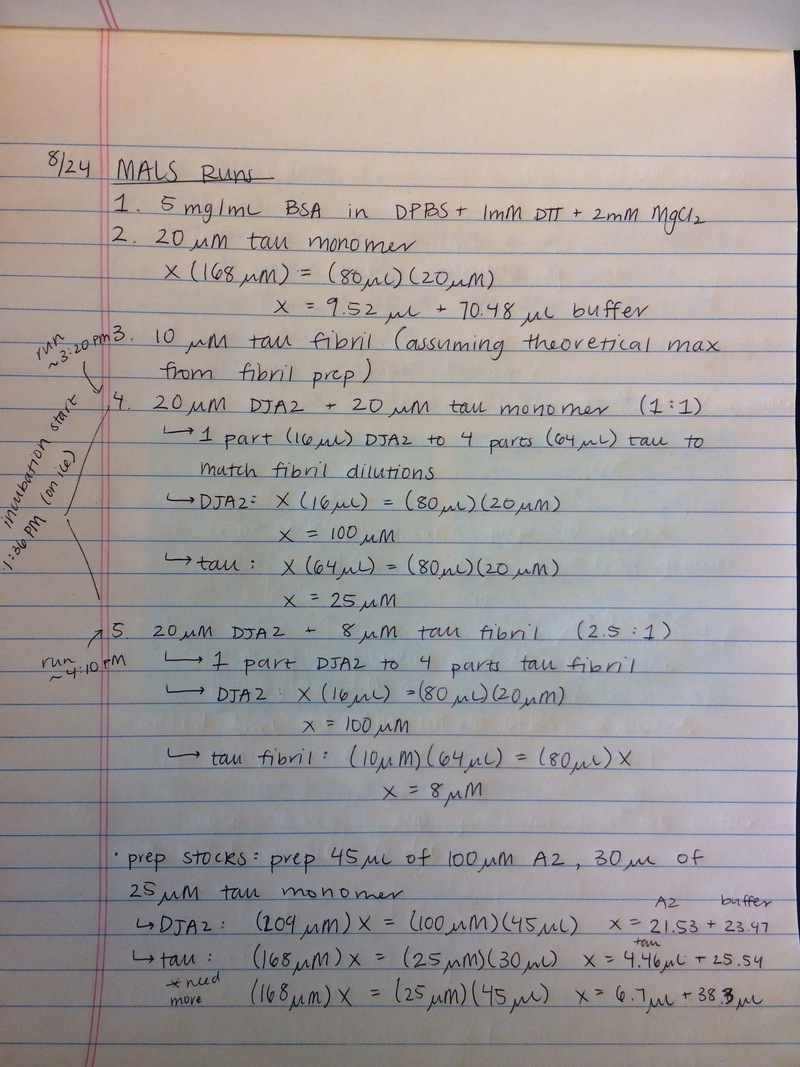 8/24 MALS Runs
1. 5 mg/mL BSA in DPBS + 1mM DTT + 2mM MgCl2
2. 20 µM tau monomer
x (168 µM) = (80µL)(20µM)
x = 9.52 µL + 70.48 µL buffer
run ~3:20 pm
3. 10 µM tau fibril (assuming theoretical max
from fibril prep)
incubation start
1:36 PM (on ice)
4. 20µM DJA2 + 20 µM tau monomer (1:1)
↳ 1 part (16µL) DJA2 to 4 parts (64µL) tau to
match fibril dilutions
↳ DJA2: x (16µL) = (80µL)(20µM)
x = 100µM
↳ tau: x (64µL) = (80µL)(20µM)
x = 25µM
5. 20µM DJA2 + 8µM tau fibril (2.5:1)
run ~4:10 PM
↳ 1 part DJA2 to 4 parts tau fibril
↳ DJA2: x (16µL) = (80µL)(20µM)
x = 100µM
↳ tau fibril: (10µM)(64µL) = (80µL) x
x = 8µM
· prep stocks: prep 45µL of 100µM A2, 30µL of
25µM tau monomer
A2 buffer
↳ DJA2: (209µM) x = (100µM)(45µL) x = 21.53 + 23.47
tau
↳ tau: (168µM) x = (25µM)(30µL) x = 4.46µL + 25.54
* need more (168µM) x = (25µM)(45µL) x = 6.7µL + 38.3µL